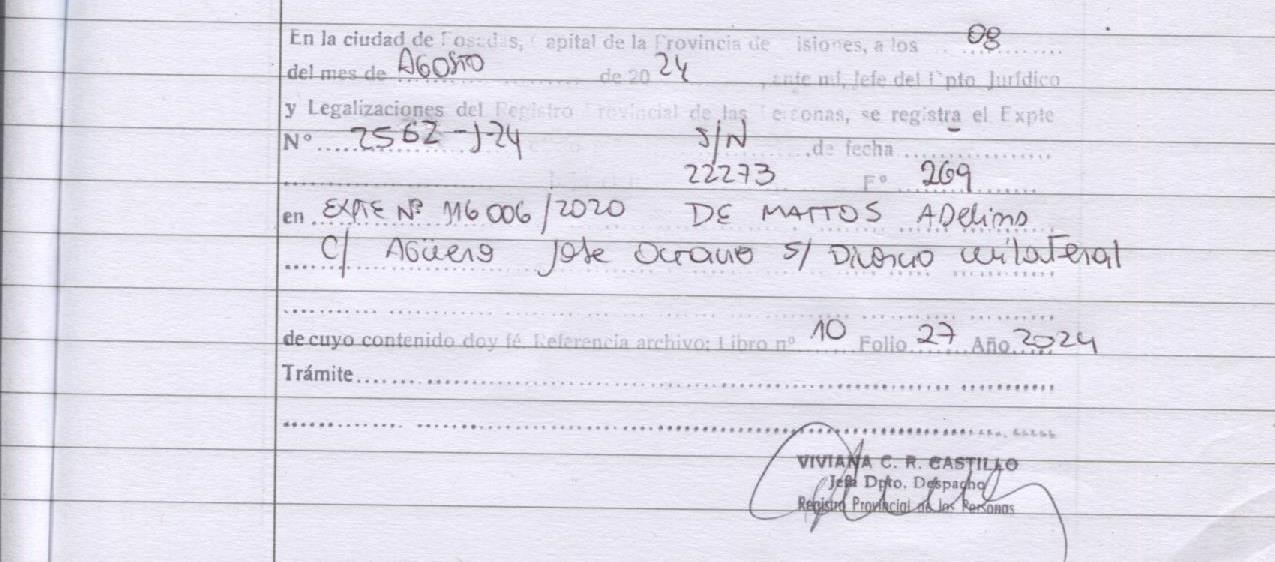 En la ciudad de Posadas, Capital de la Provincia de Misiones, a los 08
del mes de AGOSTO de 2024, ante mí, Jefe del Dpto Jurídico
y Legalizaciones del Registro Provincial de las Personas, se registra el Expte
Nº 2562-J-24 S/N de fecha
22273 Fº 269
en EXPTE Nº 116006/2020 DE MATTOS ADelina
C/ AGüero Jose Octavio S/ Divorcio unilateral
de cuyo contenido doy fé. Referencia archivo: Libro nº 10 Folio 27 Año 2024
Trámite
VIVIANA C. R. CASTILLO
Jefa Dpto. Despacho
Registro Provincial de las Personas